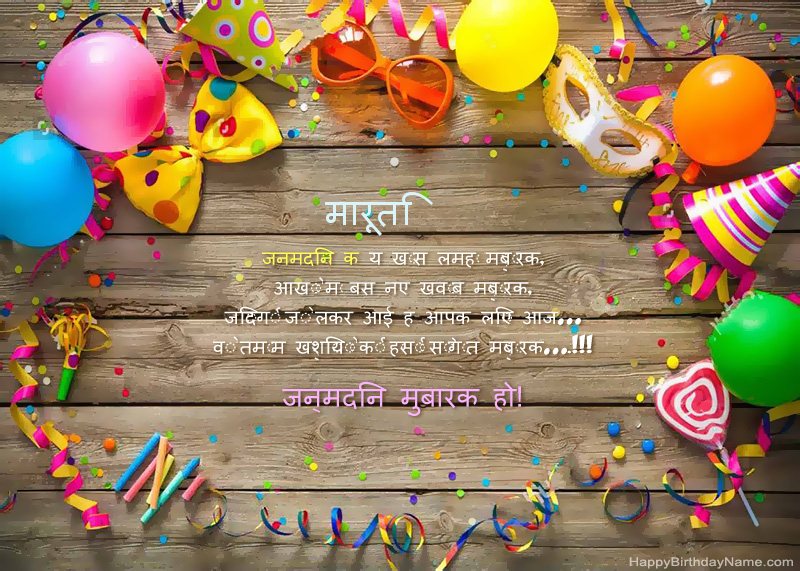 मारूति
जनमदिन क य ख़ास लमह मुबारक,
आंखों में बसे नए ख्वाब मुबारक,
जिंदगी जो लेकर आई है आपके लिए आज...
वो तमाम खुशियों की हंसीं सौगात मुबारक...!!!
जन्मदिन मुबारक हो!
HappyBirthdayName.com